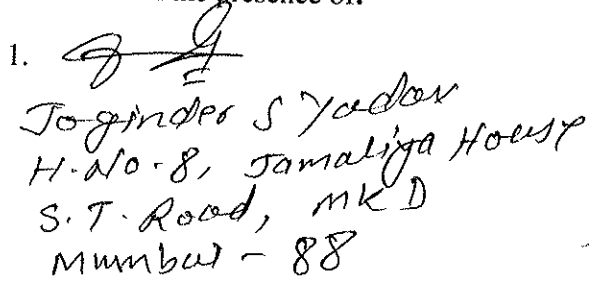 presence of:
1.
Joginder S Yadav
H.No-8, Jamaliya House
S.T. Road, MKD
Mumbai - 88